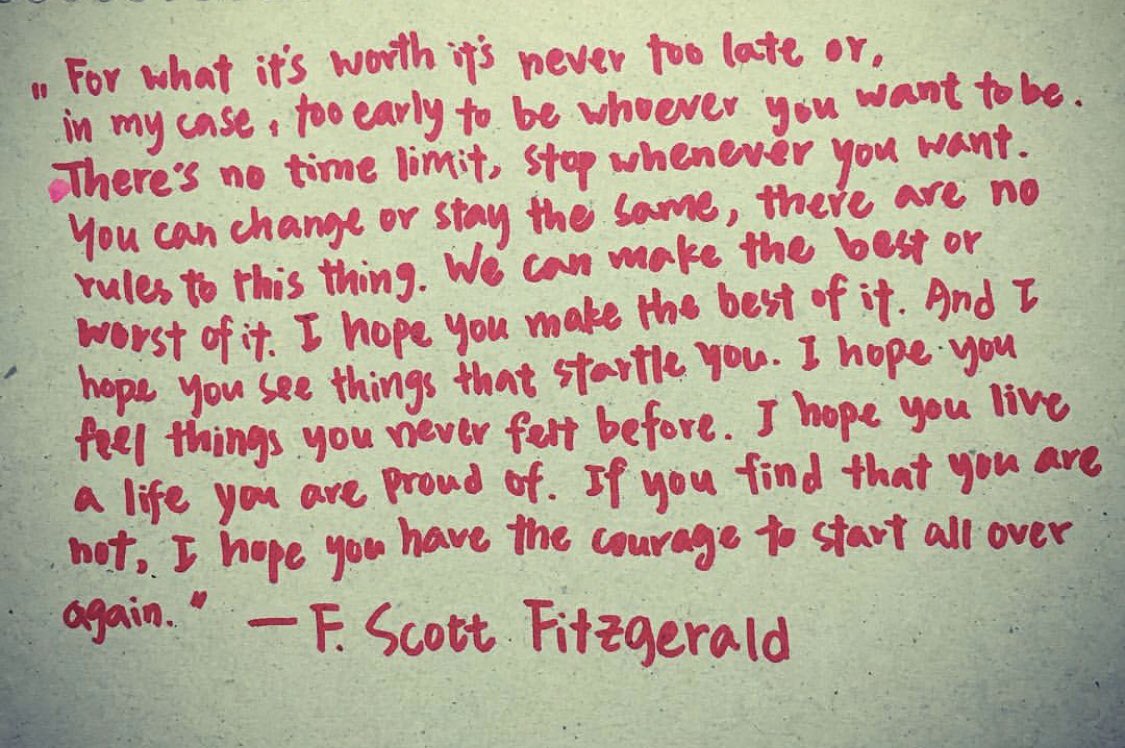 „ For what it's worth it's never too late or,
in my case, too early to be whoever you want to be.
There's no time limit, stop whenever you want.
You can change or stay the same, there are no
rules to this thing. We can make the best or
worst of it. I hope you make the best of it. And I
hope you see things that startle you. I hope you
feel things you never felt before. I hope you live
a life you are proud of. If you find that you are
not, I hope you have the courage to start all over
again." — F. Scott Fitzgerald